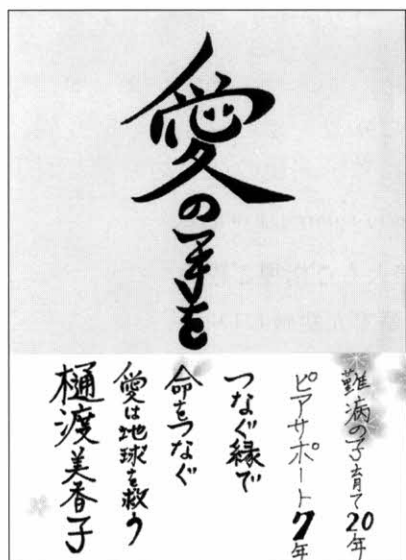 愛の手を
難病の子育て20年
ピアサポート7年
つなぐ縁で
命をつなぐ
愛は地球を救う
樋渡美香子